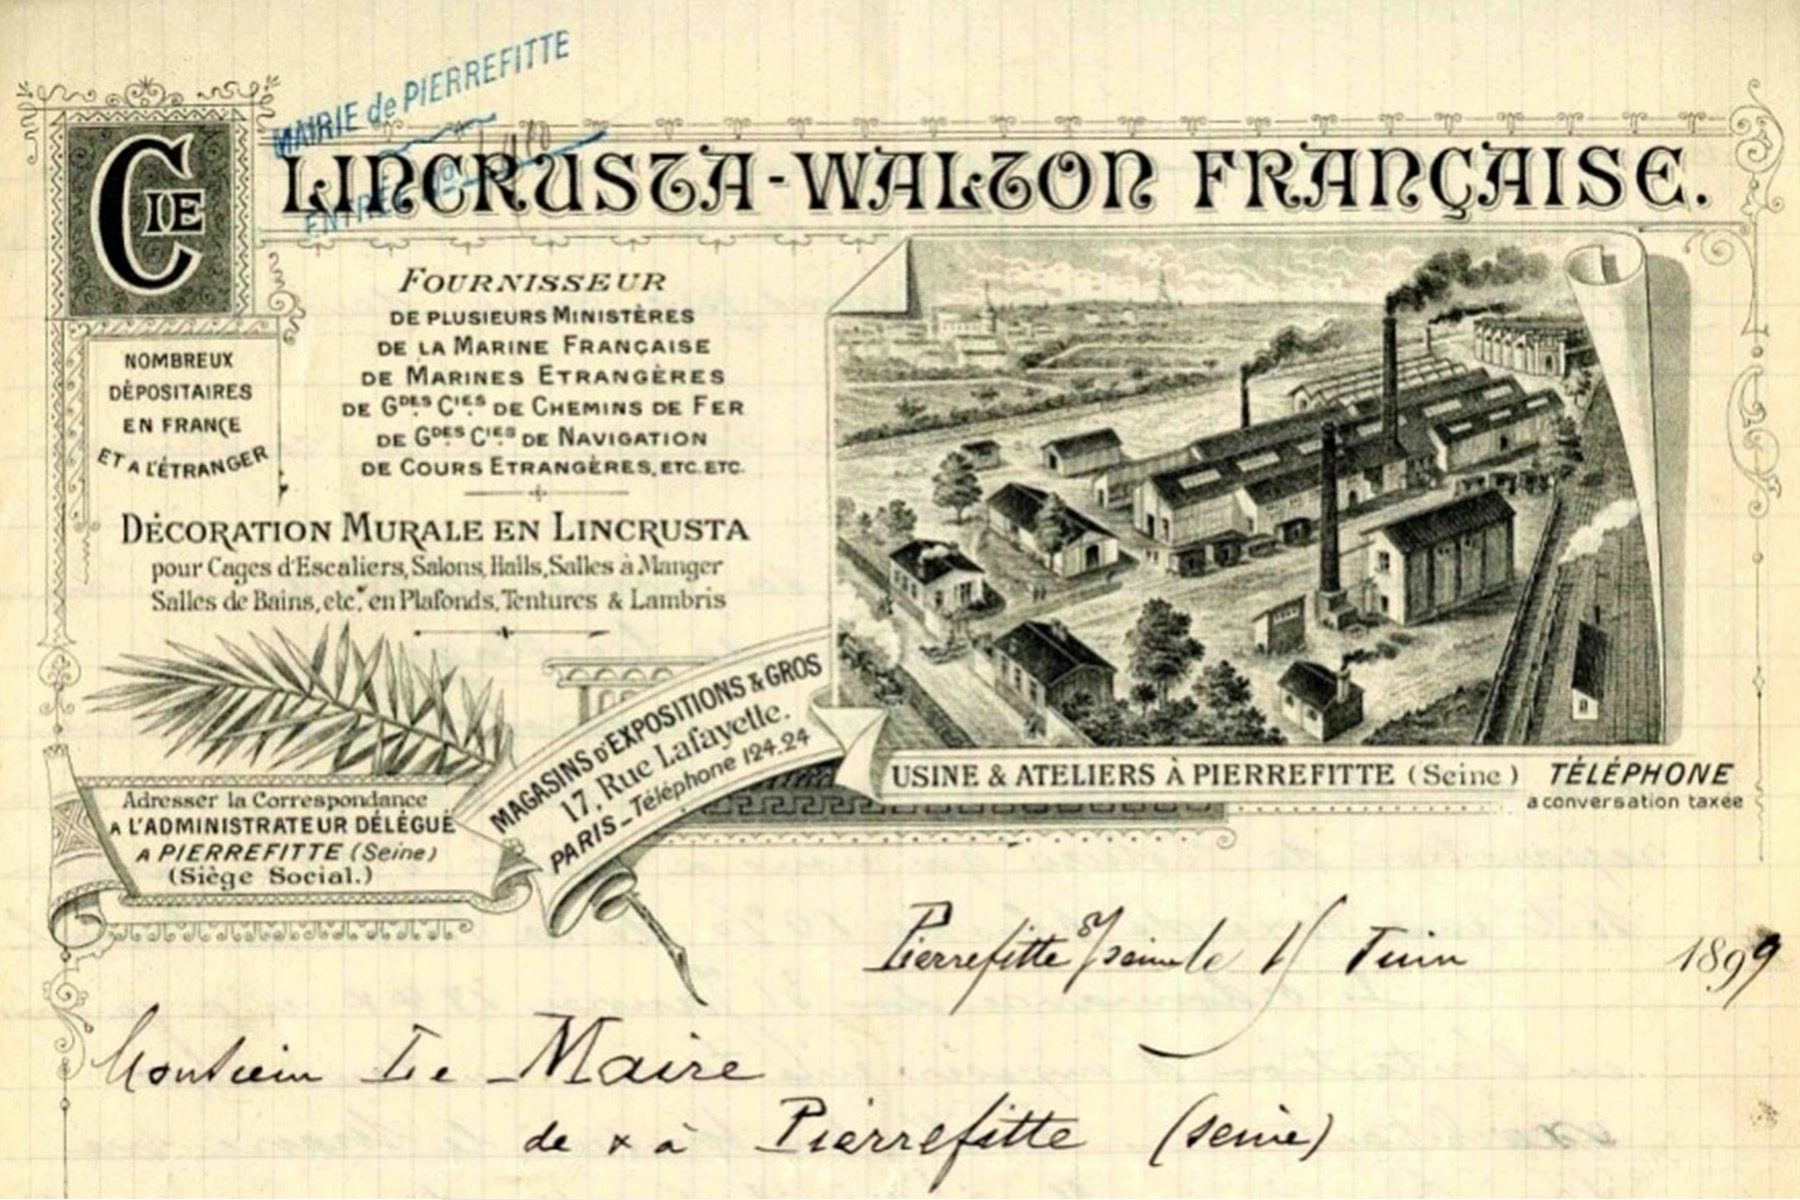 MAIRIE de PIERREFITTE
ENTRÉE
CIE LINCRUSTA-WALTON FRANÇAISE.
NOMBREUX
DÉPOSITAIRES
EN FRANCE
ET A L'ÉTRANGER
FOURNISSEUR
DE PLUSIEURS MINISTÈRES
DE LA MARINE FRANÇAISE
DE MARINES ETRANGÈRES
DE GDES CIES DE CHEMINS DE FER
DE GDES CIES DE NAVIGATION
DE COURS ETRANGÈRES, ETC. ETC.
DÉCORATION MURALE EN LINCRUSTA
pour Cages d'Escaliers, Salons, Halls, Salles à Manger
Salles de Bains, etc. en Plafonds, Tentures & Lambris
MAGASINS D'EXPOSITIONS & GROS
17, Rue Lafayette.
PARIS_Téléphone 124.24
USINE & ATELIERS À PIERREFITTE (Seine)
TÉLÉPHONE
a conversation taxée
Adresser la Correspondance
A L'ADMINISTRATEUR DÉLÉGUÉ
A PIERREFITTE (Seine)
(Siège Social.)
Pierrefitte s/seine le 15 Juin 1899
Monsieur Le Maire
de & à Pierrefitte (seine)